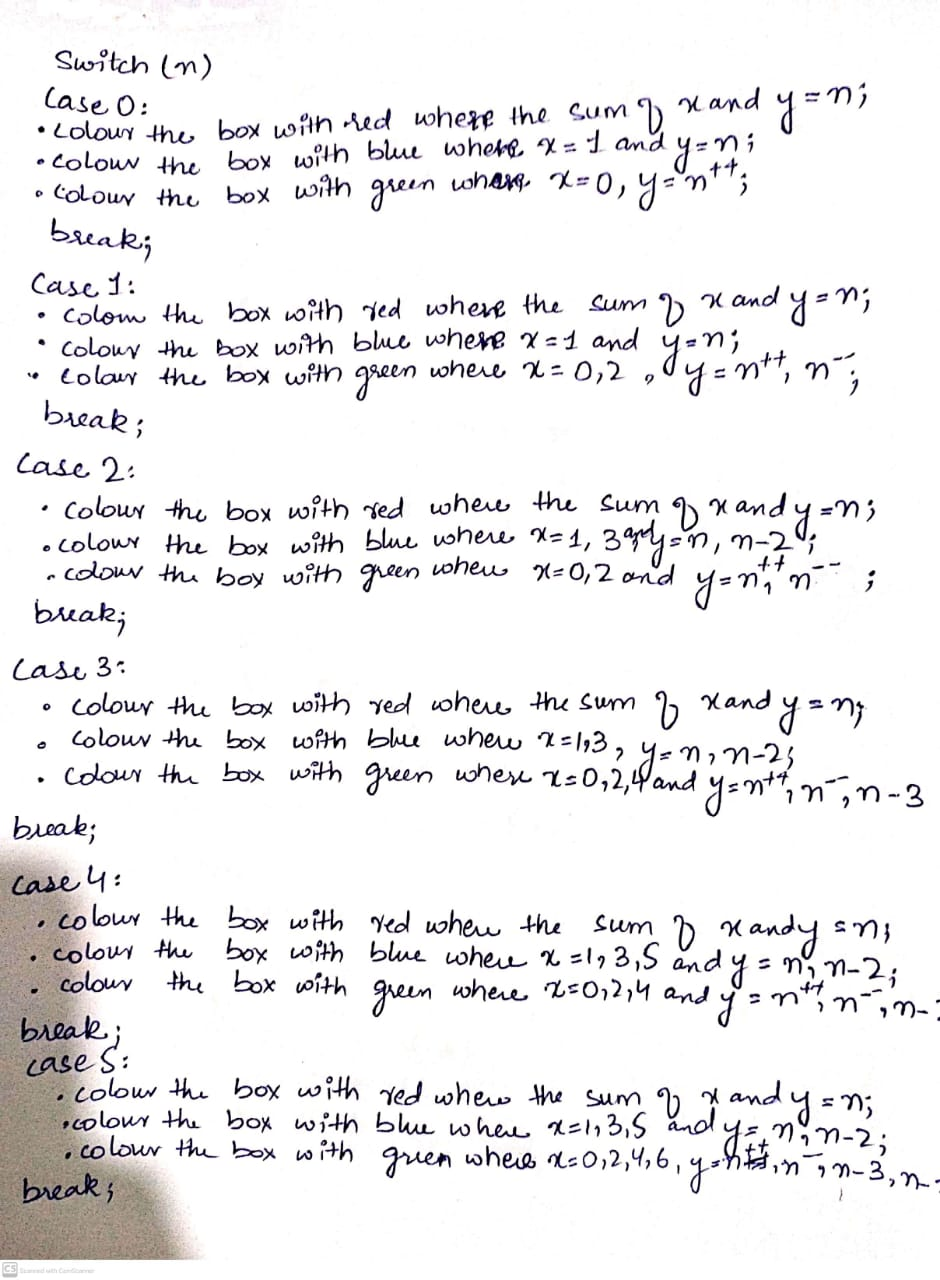 Switch (n)
Case 0:
• Colour the box with red where the sum of x and y = n;
• Colour the box with blue where x = 1 and y = n;
• Colour the box with green where x = 0, y = n++;
break;
Case 1:
• Colour the box with red where the sum of x and y = n;
• Colour the box with blue where x = 1 and y = n;
• Colour the box with green where x = 0,2, y = n++, n--;
break;
Case 2:
• Colour the box with red where the sum of x and y = n;
• Colour the box with blue where x = 1, 3 and y = n, n-2;
• Colour the box with green where x = 0,2 and y = n++, n--;
break;
Case 3:
• Colour the box with red where the sum of x and y = n;
• Colour the box with blue where x = 1,3, y = n, n-2;
• Colour the box with green where x = 0,2,4 and y = n++, n--, n-3
break;
Case 4:
• Colour the box with red where the sum of x and y = n;
• Colour the box with blue where x = 1, 3, 5 and y = n, n-2;
• Colour the box with green where x = 0,2,4 and y = n++, n--, n-
break;
Case 5:
• Colour the box with red where the sum of x and y = n;
• Colour the box with blue where x = 1,3,5 and y = n, n-2;
• Colour the box with green where x = 0,2,4,6, y = n++, n--, n-3, n-
break;
CS Scanned with CamScanner